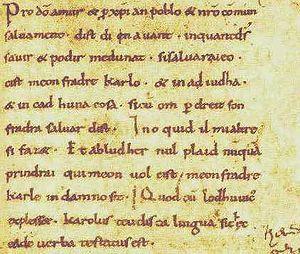 Pro dō amur & p xp̄ian poblo & nr̄o comun
saluament. dist di en auant. inquantd̄s
sauir & podir medunat. sisaluaraieo
cist meon fradre Karlo. & in ad iudha
& in cad huna cosa. sicū om p dreit son
fradra saluar dist. Ino quid il mialtre
si faz&. Et abludher nul plaid nūquā
prindrai qui meon uol cist. meon fradre
Karle in damno sit. Quod cū lodhuuic
explesset. Karolus teudisca lingua sic
eadē uerba testatus est.